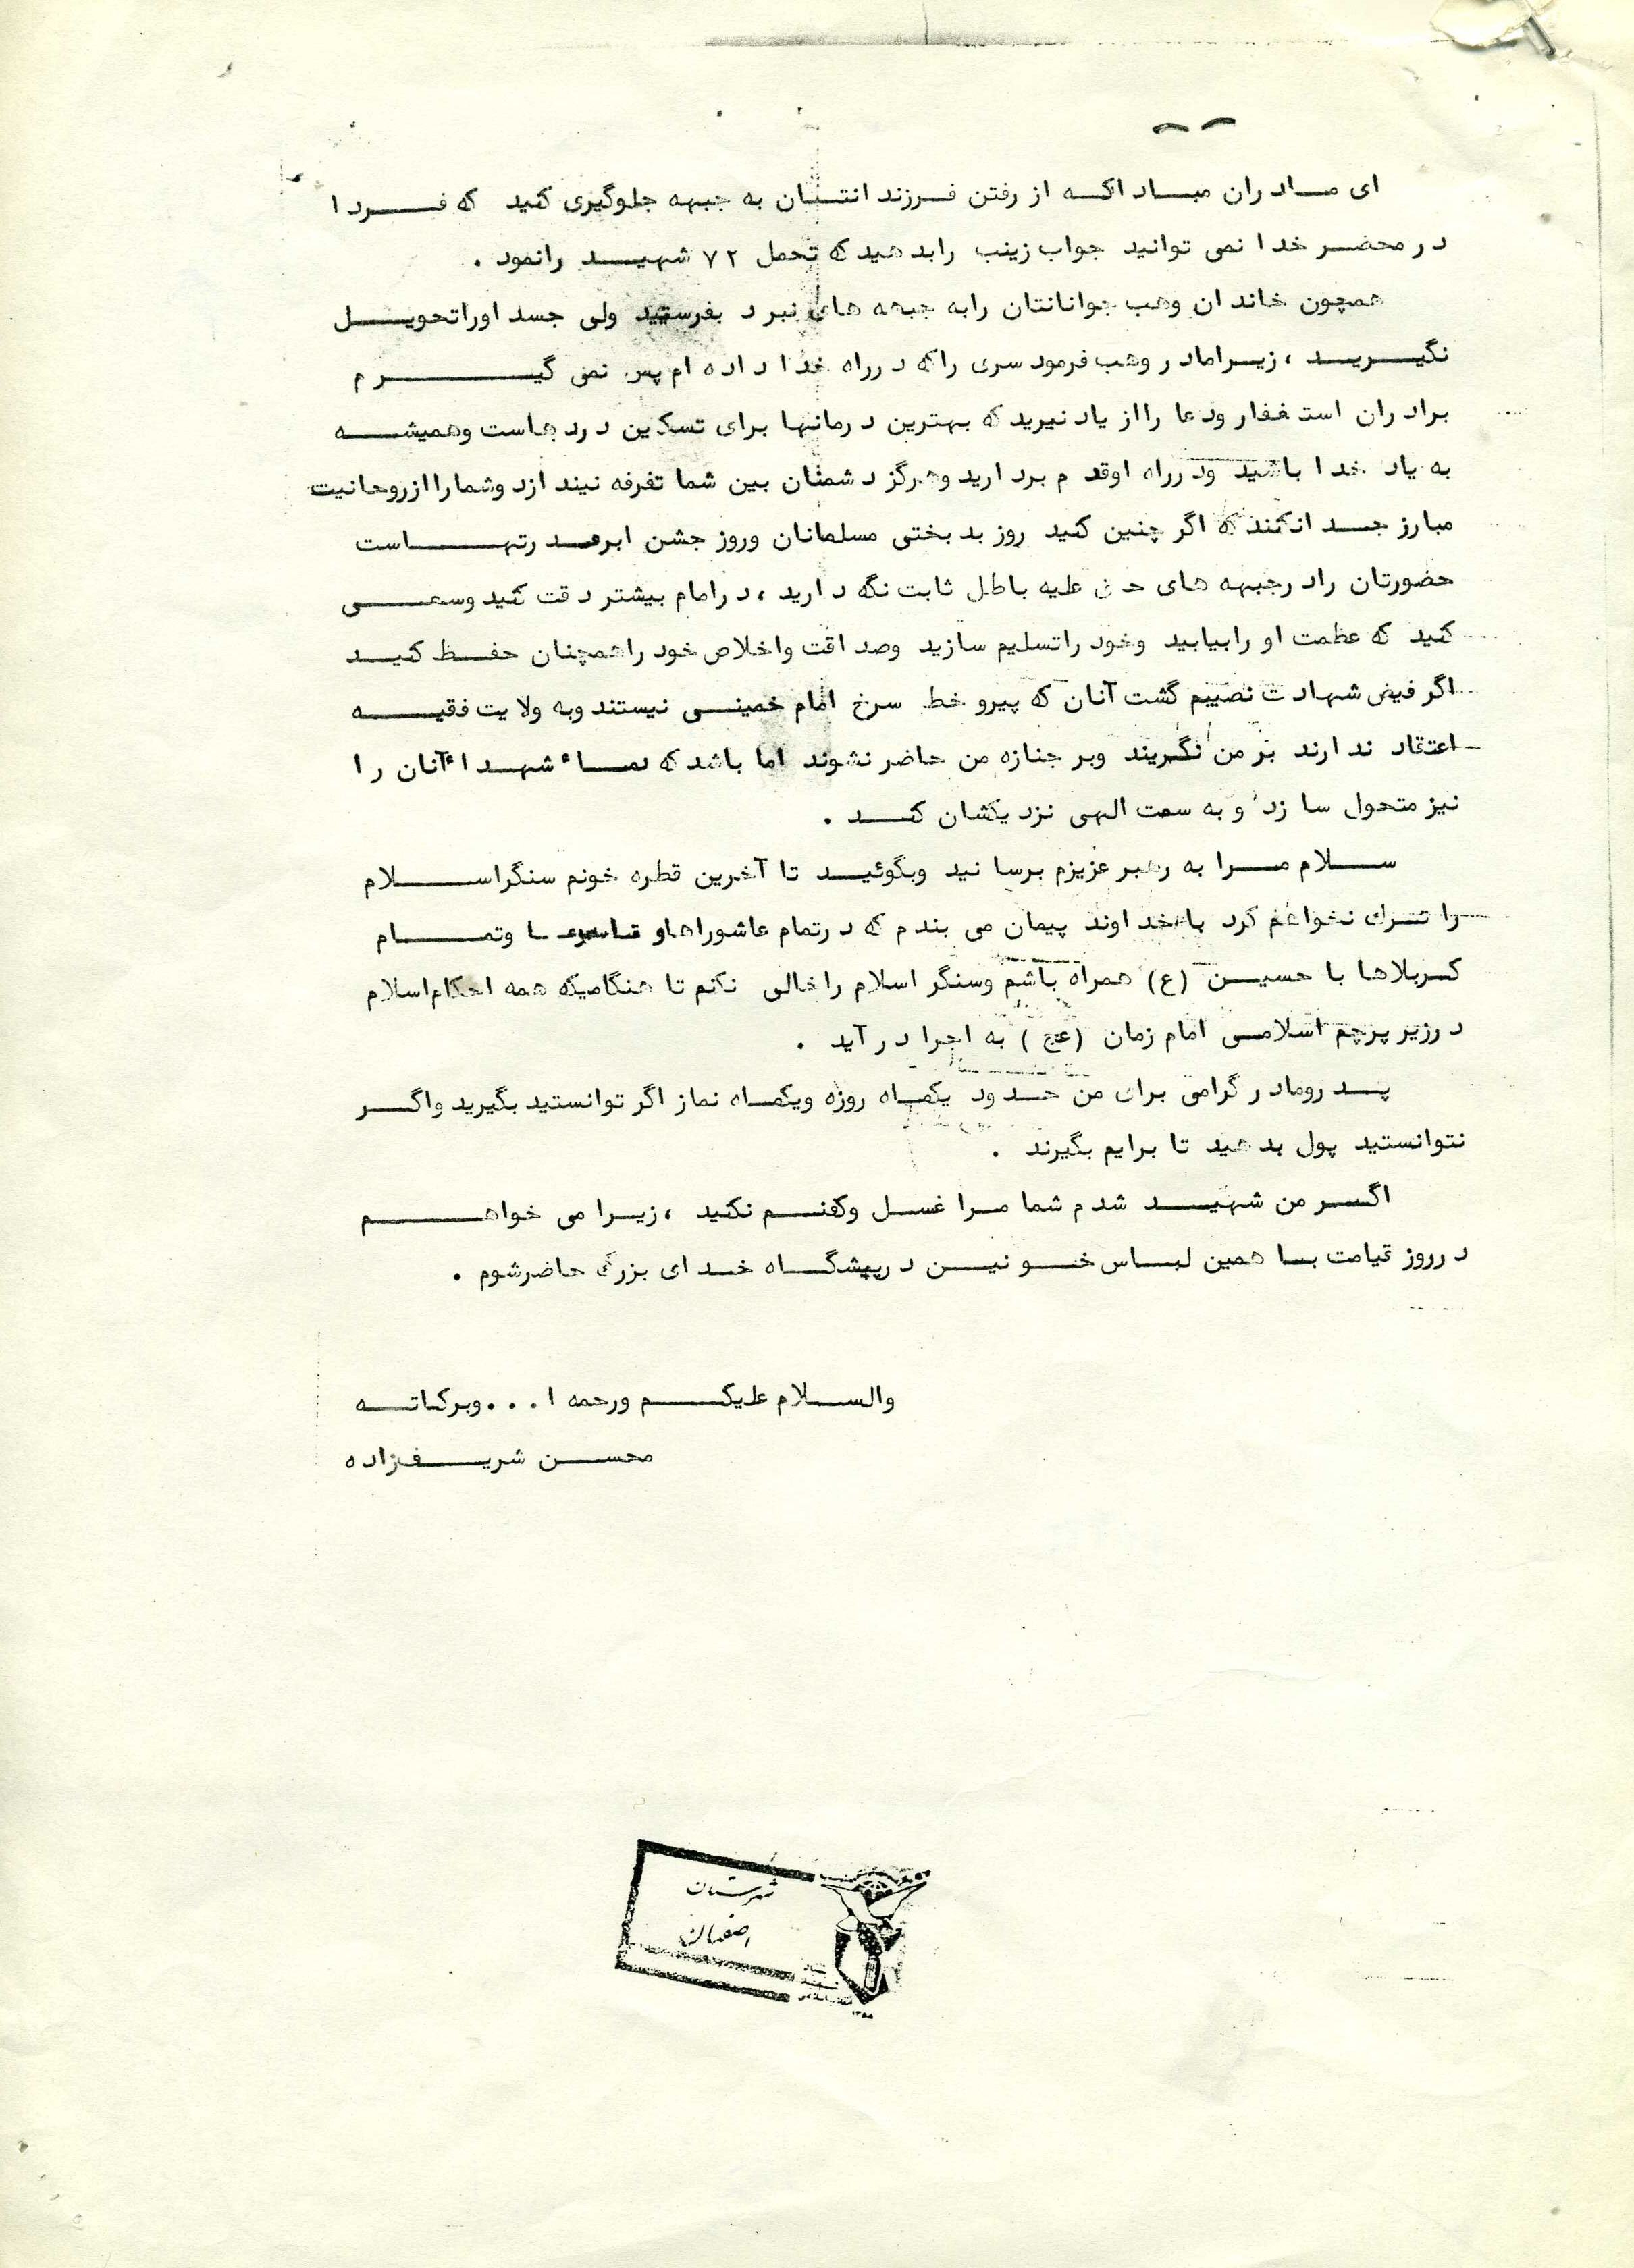 ای مادران مبادا که از رفتن فرزندانتان به جبهه جلوگیری کنید که فردا
در محضر خدا نمی توانید جواب زینب رابدهید که تحمل ۷۲ شهید رانمود .
همچون خاندان وهب جوانانتان رابه جبهه های نبرد بفرستید ولی جسد اوراتحویل
نگیرید ، زیرامادر وهب فرمود سری راکه درراه خدا داده ام پس نمی گیرم
برادران استغفار ودعا رااز یاد نیرید که بهترین درمانها برای تسکین دردهاست وهمیشه
به یاد خدا باشید ودرراه اوقدم بردارید وهرگز دشمنان بین شما تفرفه نیندازد وشماراازروحانیت
مبارز جدانکنند که اگر چنین کنید روز بدبختی مسلمانان وروز جشن ابرقدرتهاست
حضورتان رادرجبهه های حق علیه باطل ثابت نگه دارید ، درامام بیشتر دقت کنید وسعی
کنید که عظمت او رابیابید وخود راتسلیم سازید وصداقت واخلاص خود راهمچنان حفظ کنید
اگر فیض شهادت نصیبم گشت آنان که پیرو خط سرخ امام خمینی نیستند وبه ولایت فقیه
اعتقاد ندارند بر من نگریند وبر جنازه من حاضر نشوند اما باشد که شهداء آنان را
نیز متحول سازد و به سمت الهی نزدیکشان کند .
سلام مرا به رهبر عزیزم برسانید وبگوئید تا آخرین قطره خونم سنگراسلام
را ترک نخواهم کرد باخداوند پیمان می بندم که درتمام عاشوراهاو تاسوعا وتمام
کربلاها با حسین (ع) همراه باشم وسنگر اسلام راخالی نکنم تا هنگامیکه همه احکام اسلام
درزیر پرچم اسلامی امام زمان (عج) به اجرا درآید .
پدرومادر گرامی برای من حدود یکماه روزه ویکماه نماز اگر توانستید بگیرید واگر
نتوانستید پول بدهید تا برایم بگیرند .
اگر من شهید شدم شما مرا غسل وکفنم نکنید ، زیرا می خواهم
درروز قیامت با همین لباس خونین درپیشگاه خدای بزرگ حاضرشوم .
والسلام علیکم ورحمه ا...وبرکاته
محسن شریفزاده
شهرستان
اصفهان